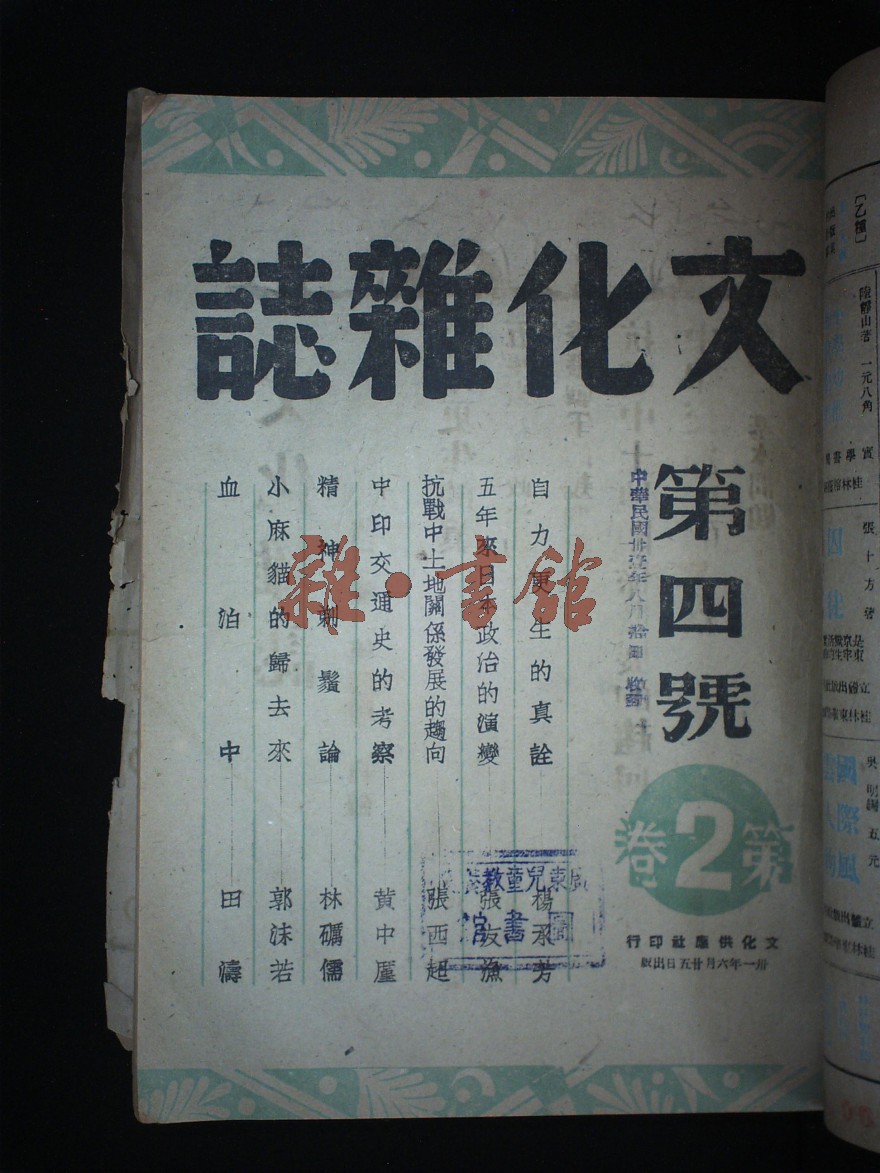 文化雜誌
第四號
第2卷
文化供應社印行
卅一年六月廿五日出版
自力更生的真詮 楊承芳
五年來日本政治的演變 張友漁
抗戰中土地關係發展的趨向 張西超
中印交通史的考察 黃中廑
精神刺鬚論 林礪儒
小麻貓的歸去來 郭沫若
血泊中 田濤
中華民國卅壹年八月拾日收到
東兒童教
圖書館
雜·書館
〔乙種〕
一元八角
張十方著
國際風
五元